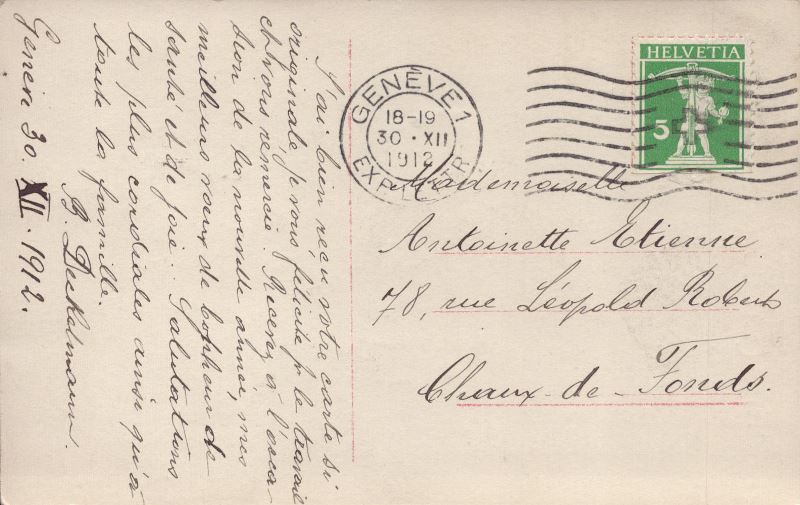 J'ai bien reçu votre carte si
originale je vous félicite pr le travail
et vous remercie. Recevez à l'occa
sion de la nouvelle année, mes
meilleurs vœux de bonheur de
santé et de joie. Salutations
les plus cordiales ainsi qu'à
toute la famille.
B. Deckelmann.
Genève 30. XII. 1912.
GENÈVE 1
18-19
30 · XII
1912
EXP. LETTR.
HELVETIA
5
Mademoiselle
Antoinette Etienne
78, rue Léopold Robert
Chaux-de-Fonds.